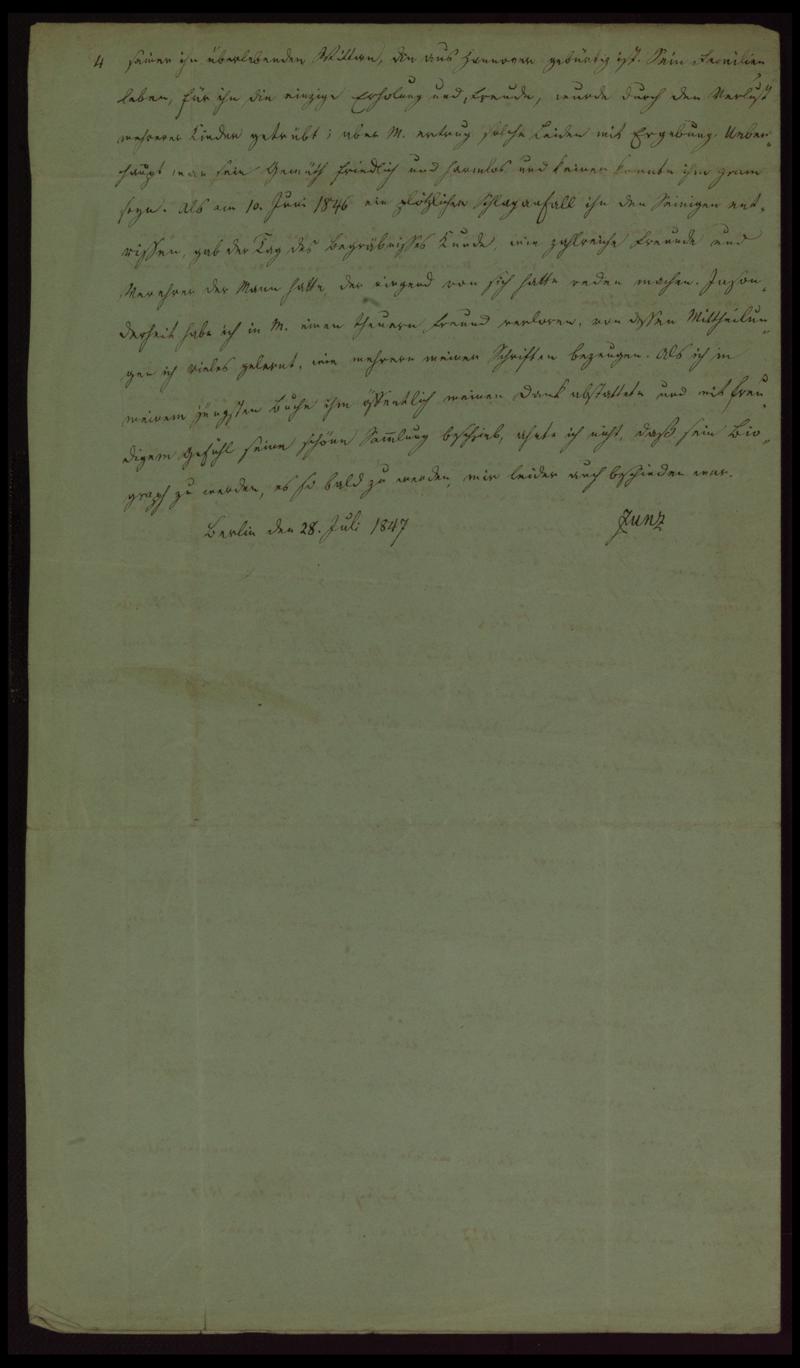 4 seiner ihn überlebenden Wittwe, die aus Hannover gebürtig ist. Sein Familien
leben, für ihn die einzige Erholung und Freude, wurde durch den Verlust
mehrerer Kinder getrübt; aber M. ertrug solche Leiden mit Ergebung. Ueber-
haupt war sein Gemüth friedlich und harmlos und keiner konnte ihm gram
seyn. Als am 10. Juni 1846 ein plötzlicher Schlaganfall ihn den Seinigen ent-
rissen, gab der Tag des Begräbnisses Kunde, wie zahlreiche Freunde und
Verehrer der Mann hatte, der nirgend von sich hatte reden machen. Inson-
derheit habe ich in M. einen theuern Freund verloren, von dessen Mittheilun-
gen ich vieles gelernt, wie mehrere meiner Schriften bezeugen. Als ich in
meinem jüngsten Buche ihm öffentlich meinen Dank abstattete und mit freu-
digem Gefühl seine schöne Sammlung beschrieb, ahnte ich nicht, daß sein Bio-
graph zu werden, es so bald zu werden, mir leider auch beschieden war.
Berlin den 28. Juli 1847 Zunz